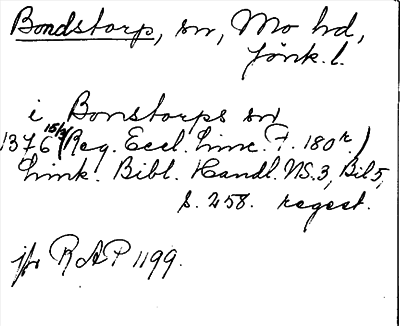 Bondstorp, sn, Mo hd,
Jönk. l.
i Bonstorps sn
1376 15/3 (Reg. Eccl. Linc. F. 180r.)
Link. Bibl. Handl. NS. 3, Bil 5,
s. 258. regest.
jfr RAP 1199.